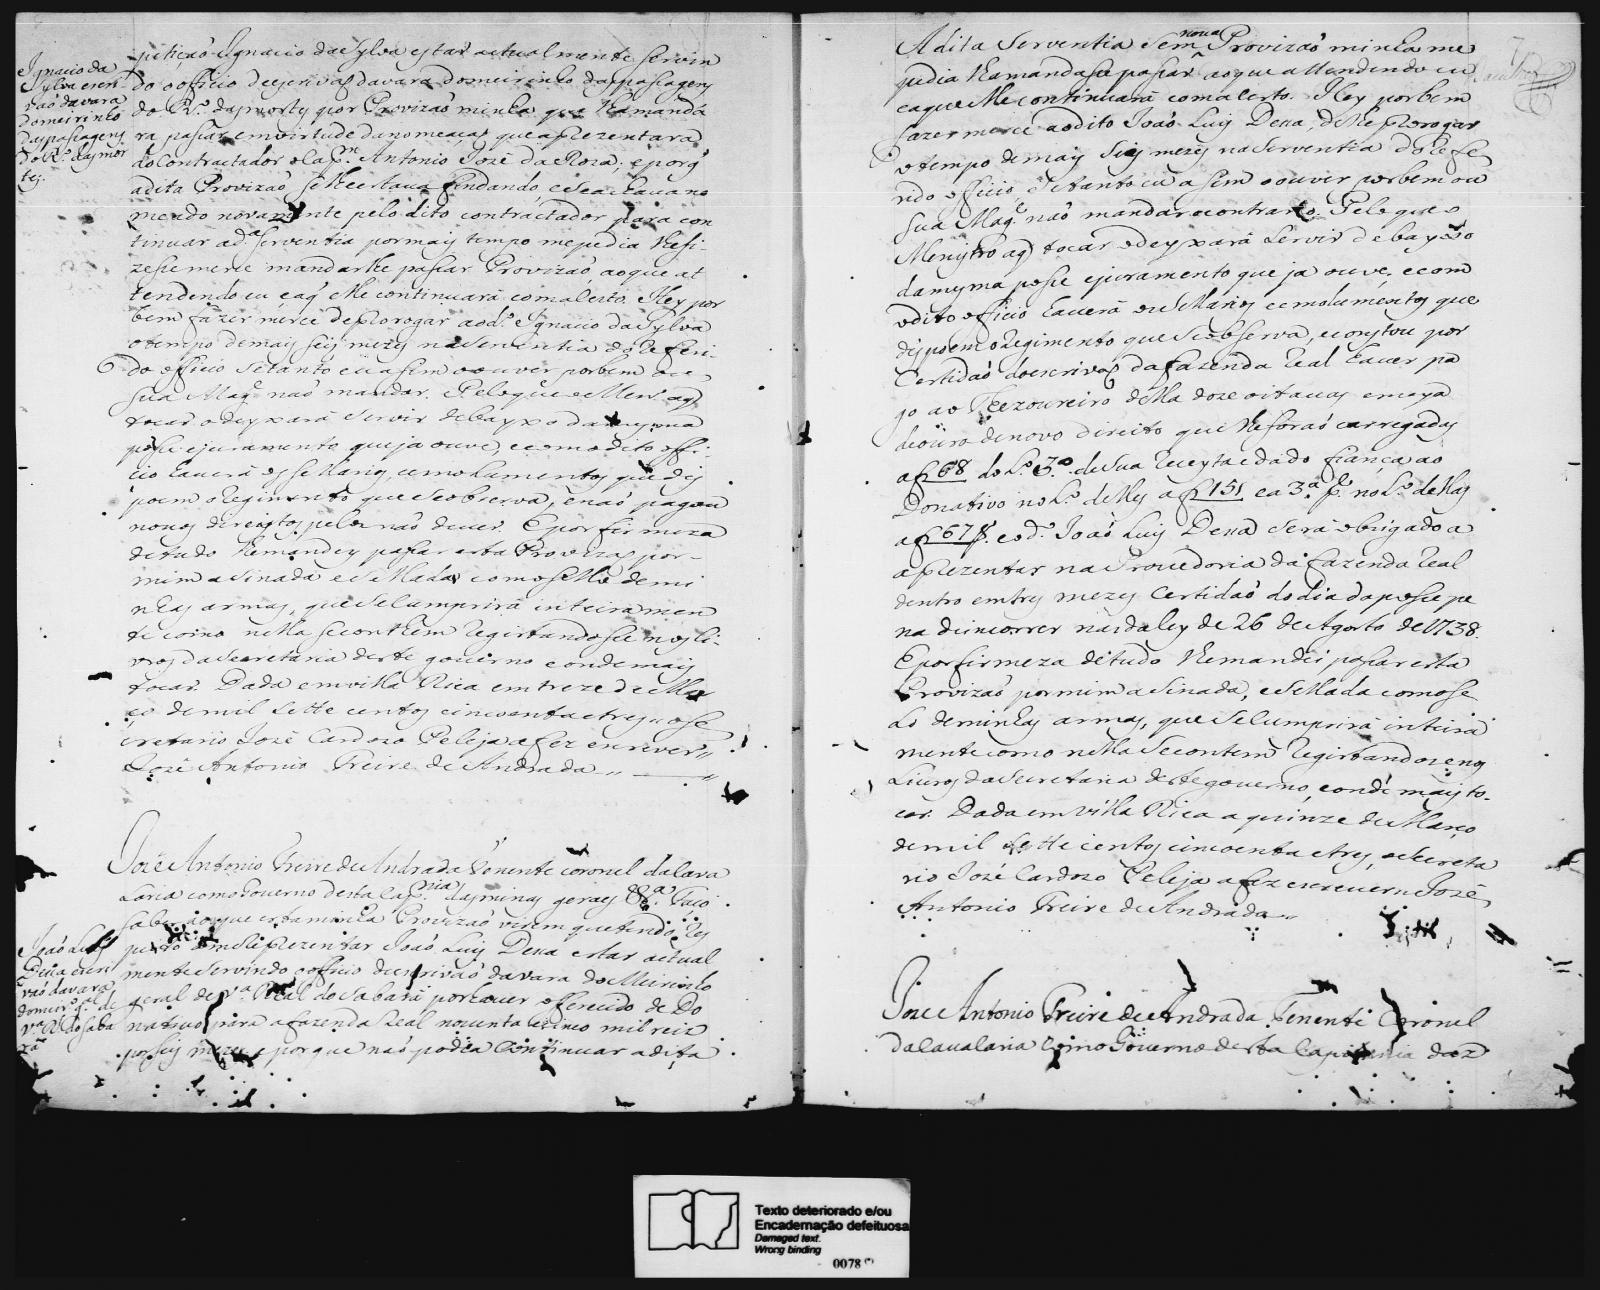 Ignacio da
Sylva escri
vaõ da vara
do meirinho
das passagens
do R.º das mor
tes
petiçaõ Ignacio da Sylva estar actualmente servin
do o officio de escrivaõ da vara do meirinho das passagens
do R.º das mortes por Provizaõ minha que lhe mandá
ra passar em virtude da nomeaçaõ que aprezentara
do Contractador o Cap.m Antonio Jozé da Roza; e porq̃
a dita Provizaõ se lhe estava findando, e se achava no
meado novamente pelo dito contractador para con
tinuar a d.ª serventia por mais tempo me pedia lhe fi-
zesse merce mandarlhe passar Provizaõ, ao que at
tendendo eu e a q̃ elle continuará com acerto. Hey por
bem fazer merce de prorogar ao d.º Ignacio da Sylva
o tempo de mais seis mezes na serventia do referi-
do officio se tanto eu assim o ouver por bem ou
sua Mag.e naõ mandar. Pelo que o Men.º a q̃
tocar o deyxará servir debayxo da mesma
posse e juramento que ja ouve, e com o dito offi-
cio haverá os sellarios, e emolumentos que dis
poem o Regimento que se observa, e naõ pagou
novos direytos pelos naõ dever. E por firmeza
de tudo lhe mandey passar esta Provizaõ por-
mim asinada e sellada com o sello de mi
nhas armas, que se cumprirá inteiramen
te como nella se conthem registandosse nos li-
vros da Secretaria deste governo e onde mais
tocar. Dada em Villa Rica em treze de Mar
ço de mil sette centos cincoenta e tres o se
cretario Jozé Cardozo Peleja a fez escrever //
Jozé Antonio Freire de Andrada //
Joze Antonio Freire de Andrada Tenente coronel da Cava
laria com o Governo desta Cap.nia das minas geraes &.ª Faço
saber aos que esta minha Provizaõ virem que tendo res
peito a me reprezentar Joaõ Luis Dena estar actual
mente servindo o officio de escrivaõ da vara do Meirinho
geral de V.ª Real do Sabará por haver offerecido de Do
nativo para a fazenda Real noventa e cinco mil reis
por seis mezes, e porque naõ podia continuar a dita
Joaõ Luis
Dena escri
vaõ da vara
do meir.º g.al de
V.ª R.l do Saba
rá
A dita Serventia sem nova Provizaõ minha me
pedia lhe mandasse passar ao que attendendo eu
e a que elle continuará com acerto. Hey por bem
fazer merce ao dito Joaõ Luis Dena, de lhe prorogar
o tempo de mais seis mezes na serventia do refe
rido officio, se tanto eu assim o ouver por bem ou
sua Mag.e naõ mandar o contrario. Pelo que o
Menistro a q̃ tocar o deyxará servir debayxo
da mesma posse e juramento que ja ouve, e com
o dito officio haverá os sellarios e emolumentos que
dispoem o Regimento que se observa, e constou por
Certidaõ do escrivaõ da fazenda Real haver pa
go ao Thezoureiro della doze oitavas e meya
de ouro de novo direito que lhe foraõ carregadas
a f 68 do L.º 3.º de sua receyta e dado fiança ao
Donativo no L.º delles a f 151 e a 3.ª p.e no L.º dellas
a f 67 v. e o d.º Joaõ Luis Dena será obrigado a
aprezentar na Provedoria da fazenda Real
dentro em tres mezes Certidaõ do dia da posse pe
na de incorrer nas da ley de 26 de Agosto de 1738.
E por firmeza de tudo lhe mandei passar esta
Provizaõ por mim asinada, e sellada com o se
lo de minhas armas, que se cumprirá inteira
mente como nella se contem registandose nos
Livros da Secretaria deste governo, e onde mais to-
car. Dada em Villa Rica a quinze de Março
de mil sette centos cincoenta e tres, o secreta
rio Jozé Cardozo Peleja a fez escrever // Jozé
Antonio Freire de Andrada //
Joze Antonio Freire de Andrada Tenente Coronel
da Cavalaria com o Governo desta Capitania das
Texto deteriorado e/ou
Encadernação defeituosa
Damaged text.
Wrong binding
0078